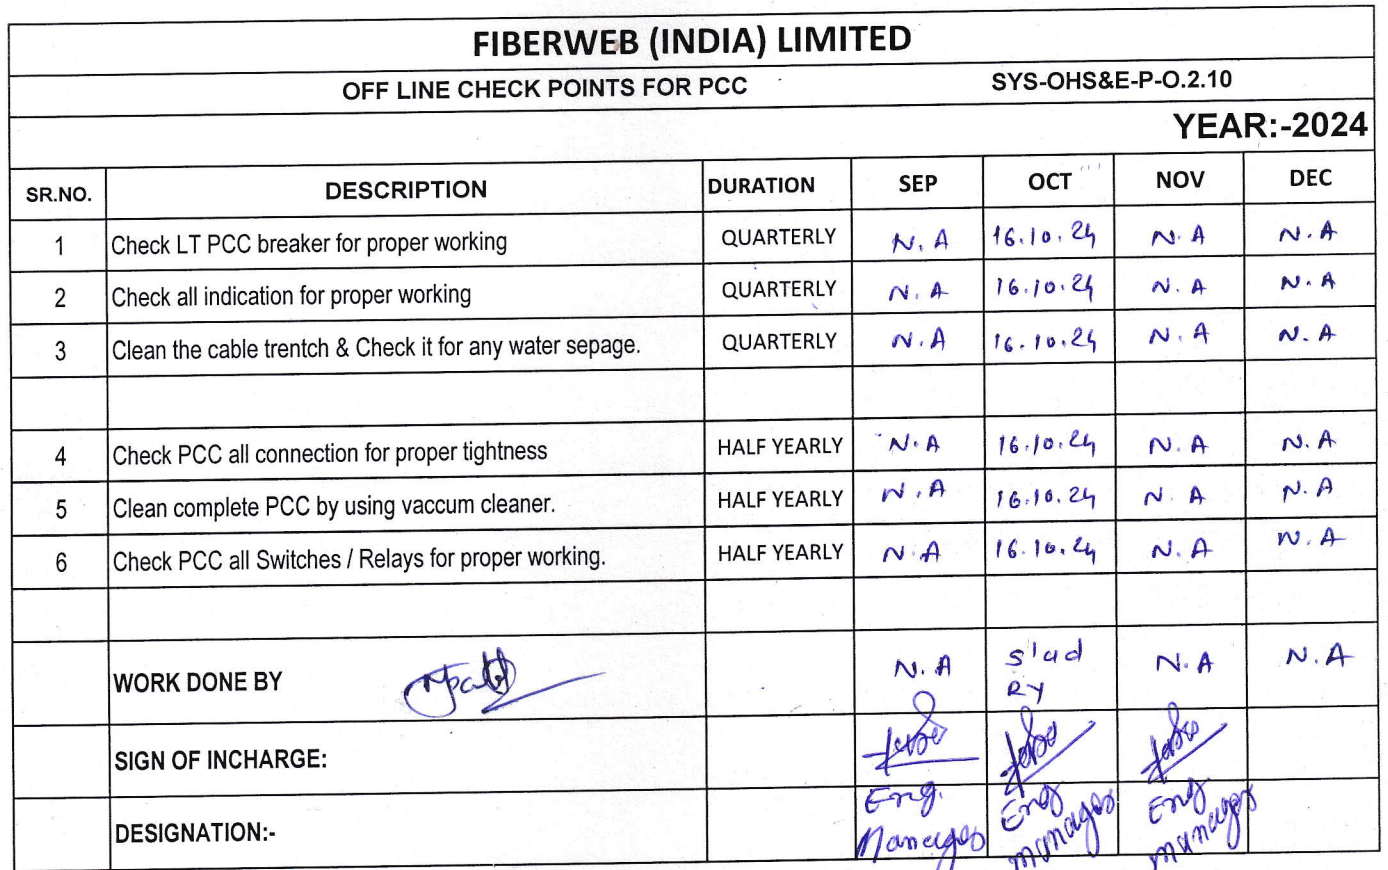 FIBERWEB (INDIA) LIMITED
OFF LINE CHECK POINTS FOR PCC SYS-OHS&E-P-O.2.10
YEAR:-2024
SR.NO. DESCRIPTION DURATION SEP OCT NOV DEC
1 Check LT PCC breaker for proper working QUARTERLY N.A 16.10.24 N.A N.A
2 Check all indication for proper working QUARTERLY N.A 16.10.24 N.A N.A
3 Clean the cable trentch & Check it for any water sepage. QUARTERLY N.A 16.10.24 N.A N.A
4 Check PCC all connection for proper tightness HALF YEARLY N.A 16.10.24 N.A N.A
5 Clean complete PCC by using vaccum cleaner. HALF YEARLY N.A 16.10.24 N.A N.A
6 Check PCC all Switches / Relays for proper working. HALF YEARLY N.A 16.10.24 N.A N.A
WORK DONE BY N.A N.A N.A
SIGN OF INCHARGE:
DESIGNATION:- Eng. Manager Eng manager Eng manager